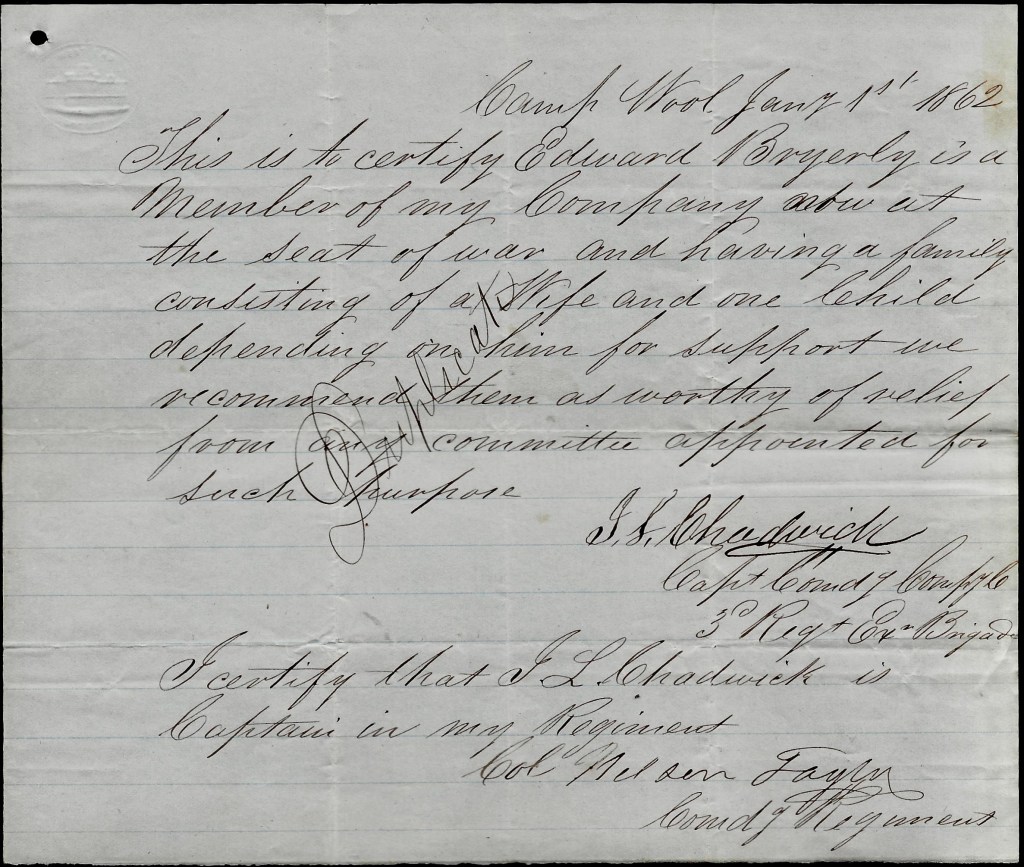 Camp Wool Jany 1st 1862
This is to certify Edward Bryerly is a
Member of my Company now at
the seat of war and having a family
consisting of a Wife and one Child
depending on him for support we
recommend them as worthy of relief
from any committee appointed for
such purpose
Duplicate
J. L. Chadwick
Capt Comdg Compy C
3d Regt Exr Brigade
I certify that J L Chadwick is
Captain in my Regiment
Col Nelson Taylor
Comdg Regiment